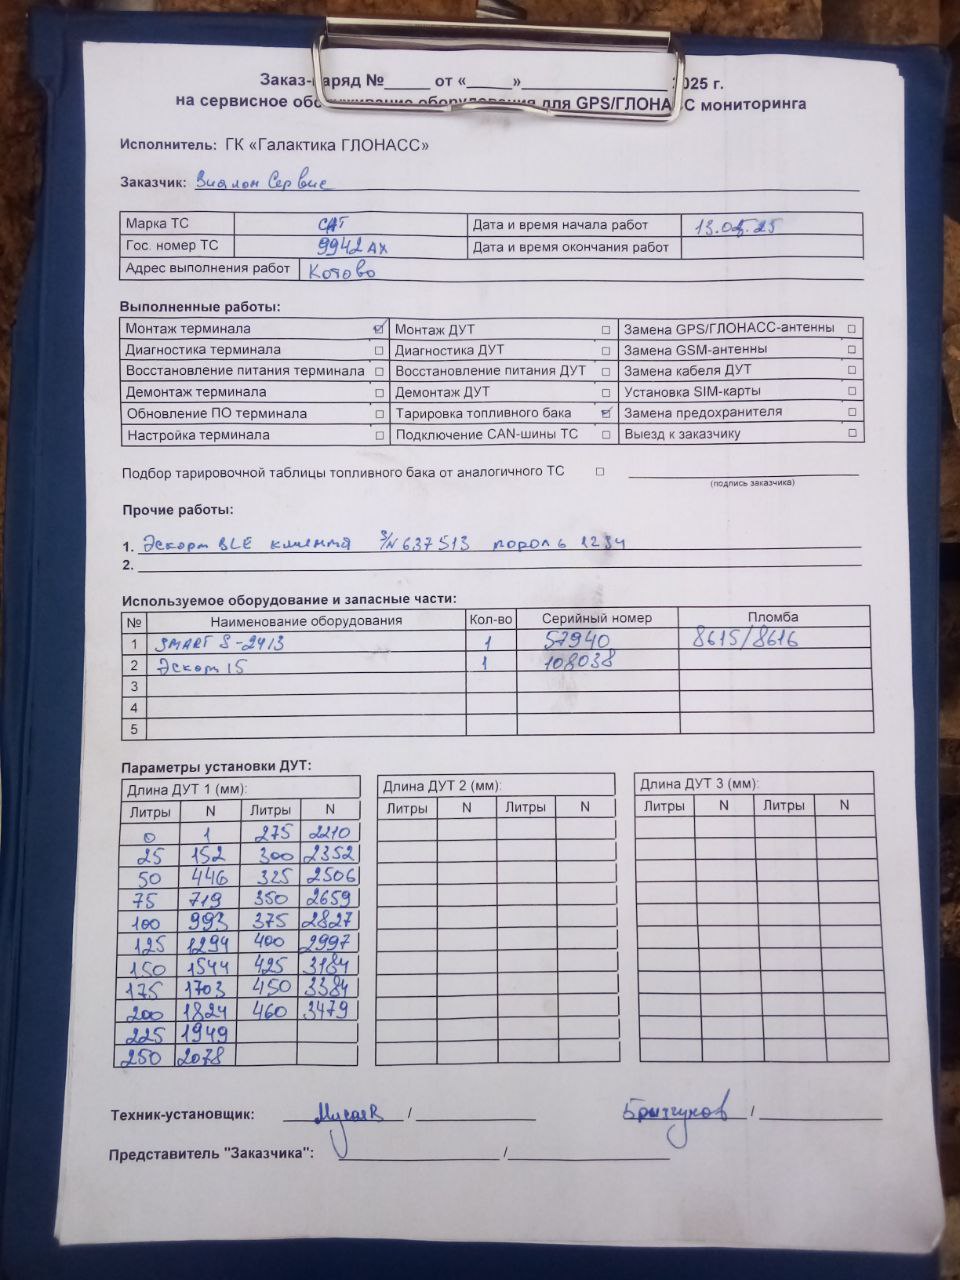 Заказ-наряд №_____ от «_____»________________ 2025 г.
на сервисное обслуживание оборудования для GPS/ГЛОНАСС мониторинга
Исполнитель: ГК «Галактика ГЛОНАСС»
Заказчик: Виалон Сервис
Марка ТС САТ Дата и время начала работ 13.05.25
Гос. номер ТС 9942 АХ Дата и время окончания работ
Адрес выполнения работ Котово
Выполненные работы:
Монтаж терминала ☑ Монтаж ДУТ ☐ Замена GPS/ГЛОНАСС-антенны ☐
Диагностика терминала ☐ Диагностика ДУТ ☐ Замена GSM-антенны ☐
Восстановление питания терминала ☐ Восстановление питания ДУТ ☐ Замена кабеля ДУТ ☐
Демонтаж терминала ☐ Демонтаж ДУТ ☐ Установка SIM-карты ☐
Обновление ПО терминала ☐ Тарировка топливного бака ☑ Замена предохранителя ☐
Настройка терминала ☐ Подключение CAN-шины ТС ☐ Выезд к заказчику ☐
Подбор тарировочной таблицы топливного бака от аналогичного ТС ☐
(подпись заказчика)
Прочие работы:
1. Эскорт BLE клиента S/N 637513 пароль 1234
2.
Используемое оборудование и запасные части:
№ Наименование оборудования Кол-во Серийный номер Пломба
1 SMART S-2413 1 57940 8615/8616
2 Эскорт 15 1 108038
3
4
5
Параметры установки ДУТ:
Длина ДУТ 1 (мм): Длина ДУТ 2 (мм): Длина ДУТ 3 (мм):
Литры N Литры N Литры N Литры N Литры N Литры N
0 1 275 2210
25 152 300 2352
50 446 325 2506
75 719 350 2659
100 993 375 2827
125 1294 400 2997
150 1544 425 3184
175 1703 450 3384
200 1824 460 3479
225 1949
250 2078
Техник-установщик: / /
Представитель "Заказчика": /